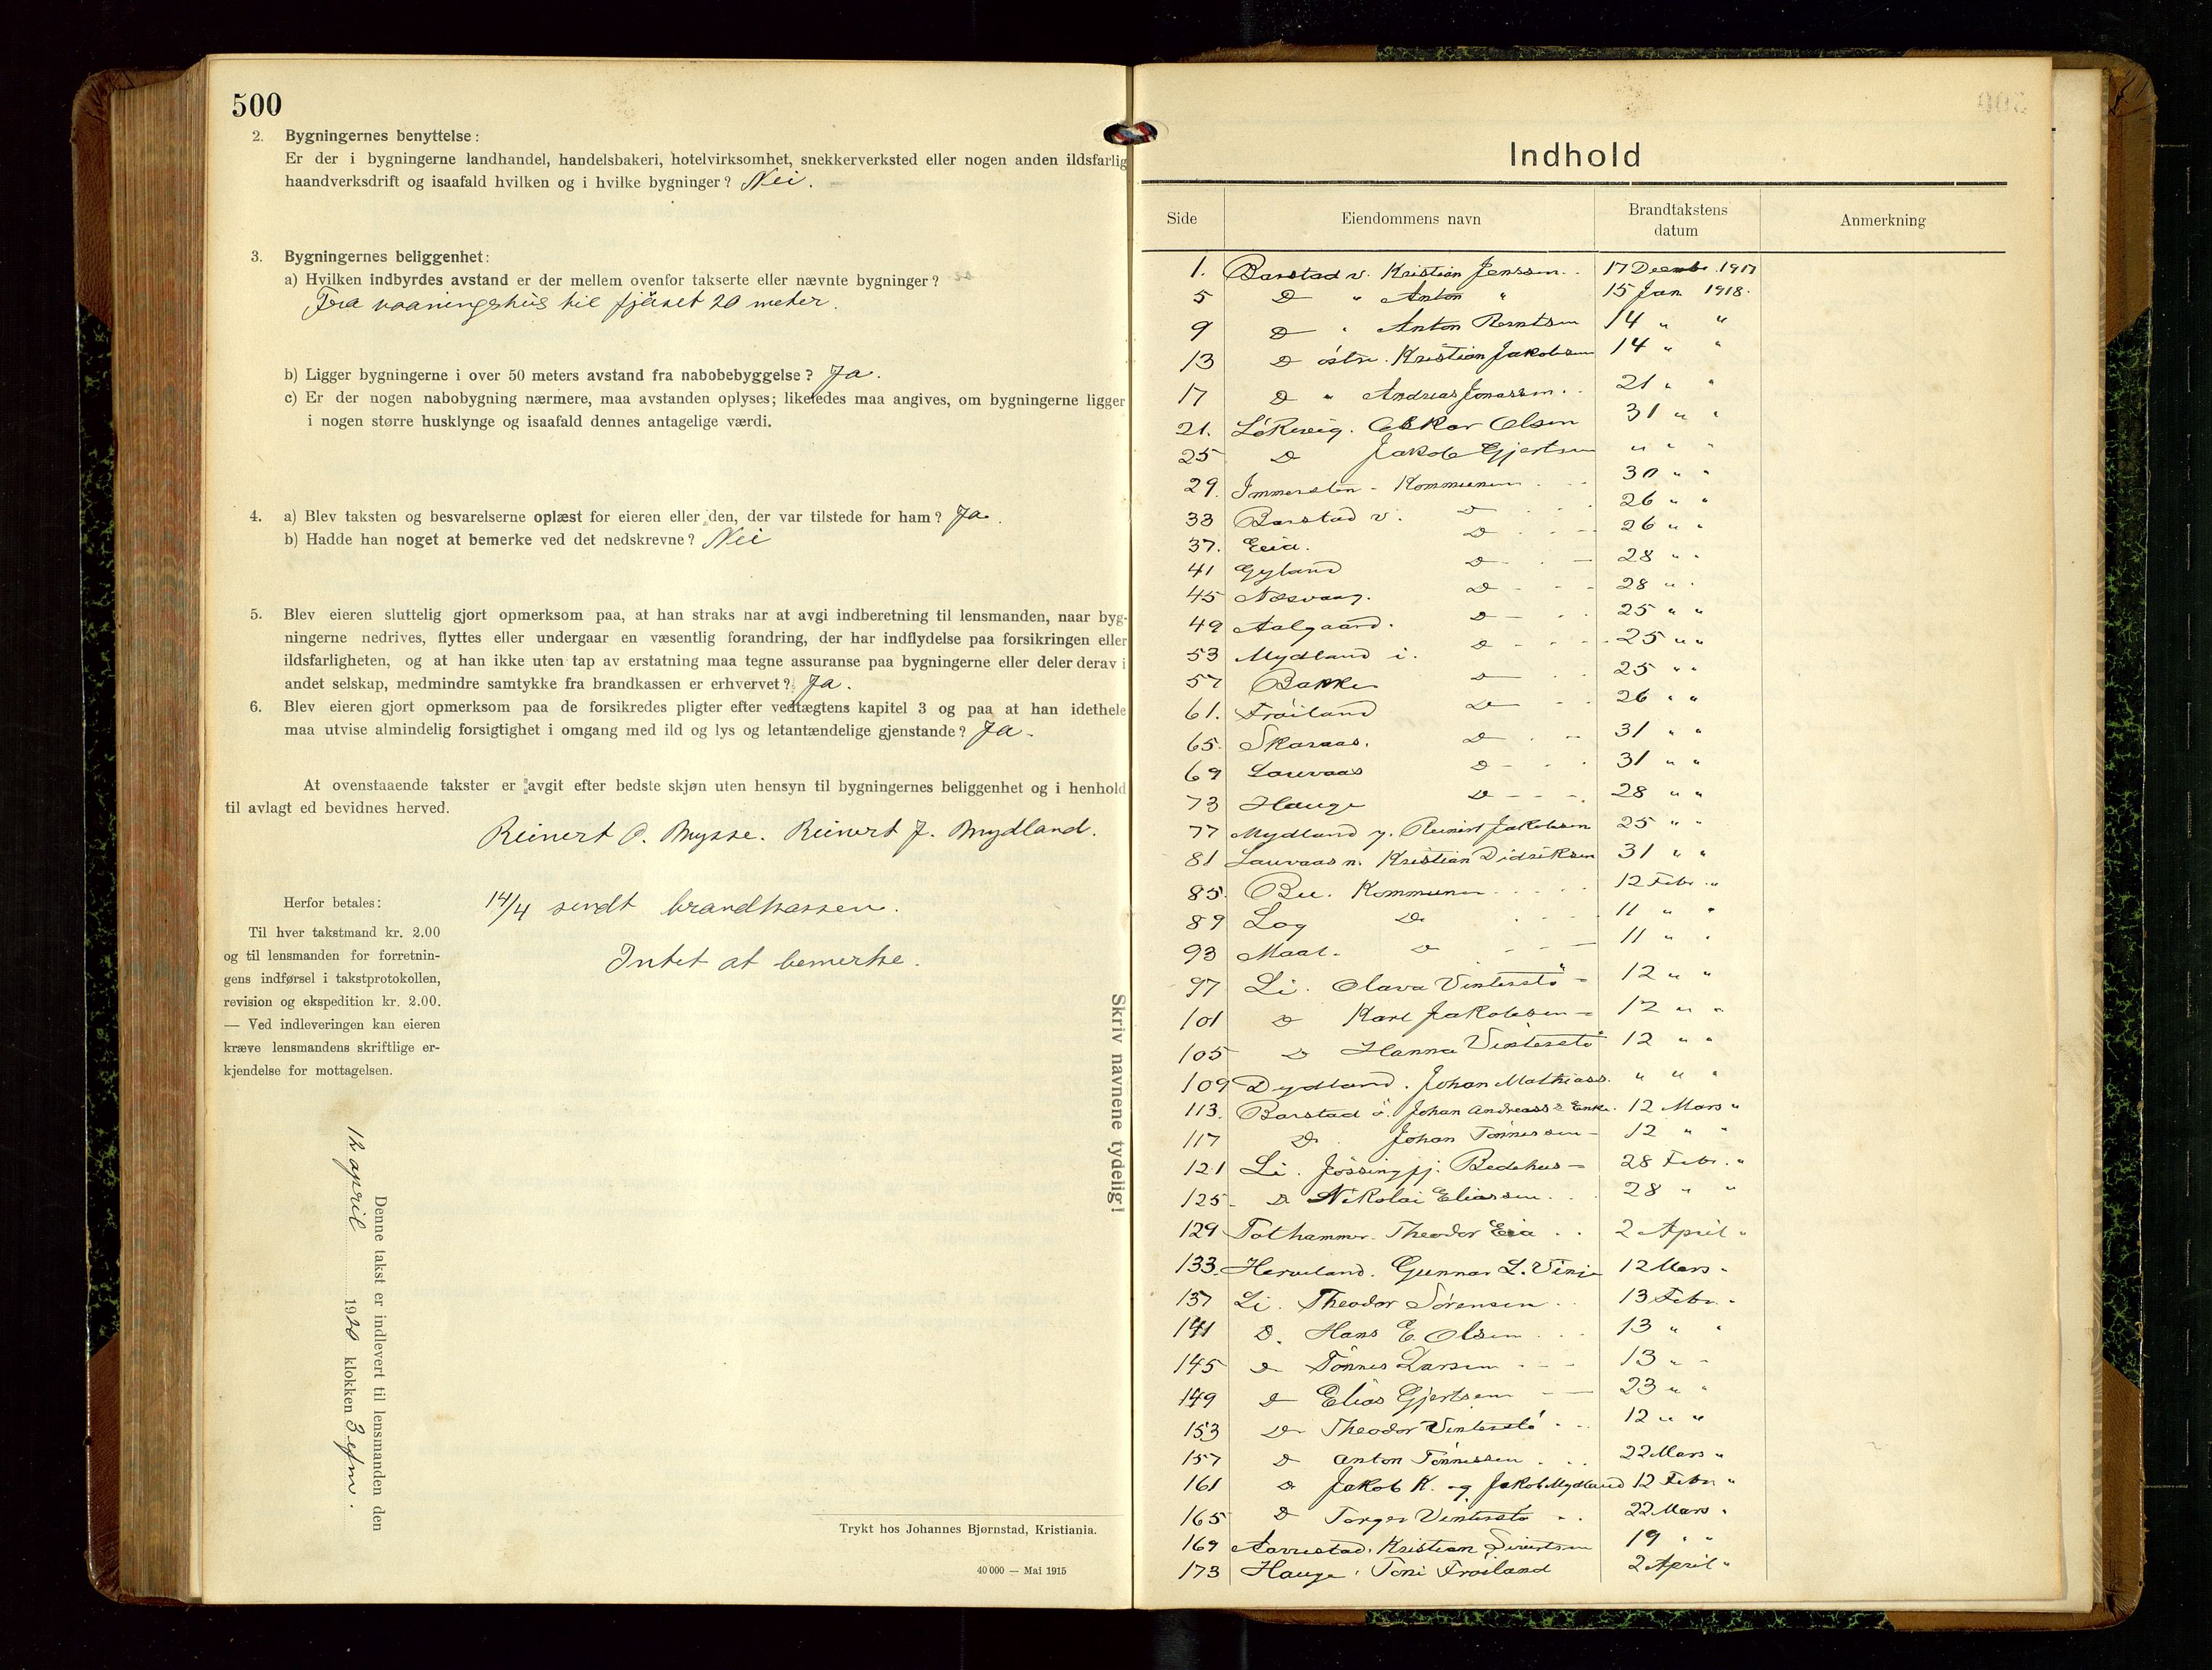 500
2. Bygningernes benyttelse:
Er der i bygningerne landhandel, handelsbakeri, hotelvirksomhet, snekkerverksted eller nogen anden ildsfarlig
haandverksdrift og isaafald hvilken og i hvilke bygninger? Nei.
3. Bygningernes beliggenhet:
a) Hvilken indbyrdes avstand er der mellem ovenfor takserte eller nævnte bygninger?
Fra vaaningshus til fjöset 20 meter.
b) Ligger bygningerne i over 50 meters avstand fra nabobebyggelse? Ja.
c) Er der nogen nabobygning nærmere, maa avstanden oplyses; likeledes maa angives, om bygningerne ligger
i nogen større husklynge og isaafald dennes antagelige værdi.
4. a) Blev taksten og besvarelserne oplæst for eieren eller den, der var tilstede for ham? Ja.
b) Hadde han noget at bemerke ved det nedskrevne? Nei
5. Blev eieren sluttelig gjort opmerksom paa, at han straks har at avgi indberetning til lensmanden, naar byg-
ningerne nedrives, flyttes eller undergaar en væsentlig forandring, der har indflydelse paa forsikringen eller
ildsfarligheten, og at han ikke uten tap av erstatning maa tegne assuranse paa bygningerne eller deler derav i
andet selskap, medmindre samtykke fra brandkassen er erhvervet? Ja.
6. Blev eieren gjort opmerksom paa de forsikredes pligter efter vedtægtens kapitel 3 og paa at han idethele
maa utvise almindelig forsigtighet i omgang med ild og lys og letantændelige gjenstande? Ja.
At ovenstaaende takster er avgit efter bedste skjøn uten hensyn til bygningernes beliggenhet og i henhold
til avlagt ed bevidnes herved.
Reinert O. Mysse. Reinert J. Mydland.
Herfor betales:
Til hver takstmand kr. 2.00
og til lensmanden for forretnin-
gens indførsel i takstprotokollen,
revision og ekspedition kr. 2.00.
— Ved indleveringen kan eieren
kræve lensmandens skriftlige er-
kjendelse for mottagelsen.
14/4 sendt brandkassen.
Intet at bemerke.
Denne takst er indlevert til lensmanden den
12 april 1920 klokken 3 efm.
Skriv navnene tydelig!
Trykt hos Johannes Bjørnstad, Kristiania.
40 000 — Mai 1915
Indhold
Side Eiendommens navn Brandtakstens datum Anmerkning
1. Barstad v. Kristian Jenssen. 17 Decembr. 1917
5 D " Anton " 15 Jan 1918.
9 D " Anton Berntsen 14 " "
13 D östre. Kristian Jakobsen 14 " "
17 D " Andreas Jonassen. 21 " "
21. Lökevig. Oskar Olsen 31 " "
25 D Jakob Gjertsen " " "
29. Immersten - Kommunen 30 " "
33 Barstad v. D 26 " "
37. Eeia. D 26 " "
41 Gyland D 28 " "
45 Nesvaag. D 28 " "
49 Aalgaard. D 25 " "
53 Mydland i. D 25 " "
57 Bakke D 25 " "
61. Fröiland D 26 " "
65. Skaraas. D 31 " "
69 Lauvaas D 31 " "
73 Hauge D 28 " "
77 Mydland y. Reinert Jakobsen 25 " "
81 Lauvaas n. Kristian Didriksen 31 " "
85. Bu. Kommunen 12 Febr. "
89 Log D 11 " "
93 Maal. D 11 " "
97 Li. Olava Vinterstö 12 " "
101 D Karl Jakobsen 12 " "
105 D Hanna Vinterstö 12 " "
109 Dydland. Johan Mathiass. " " "
113. Barstad ö. Johan Andreass's Enke. 12 Mars "
117 D. Johan Tönnessen 12 " "
121 Li. Jössingfj. Bedehus 28 Febr. "
125 D Nikolai Eliassen 28 " "
129 Tothammer. Theodor Eia 2 April "
133. Herveland. Gunnar L. Vinje 12 Mars "
137 Li. Theodor Sörensen 13 Febr. "
141 D. Hans E. Olsen 13 " "
145 D Tönnes Larsen 13 " "
149 D Elias Gjertsen 23 " "
153 D Theodor Vinterstö 12 " "
157 D Anton Tönnessen 22 Mars "
161 D Jakob K. og Jakob Mydland 12 Febr "
165 D Torger Vinterstö 22 Mars "
169 Aavestad. Kristian Sivertsen 19 " "
173 Hauge. Toni Fröiland 2 April "